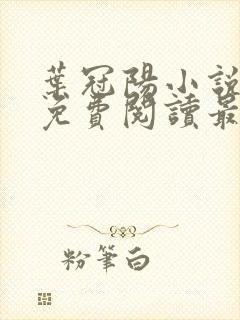 葉冠陽小說
免費閱讀最
粉筆白